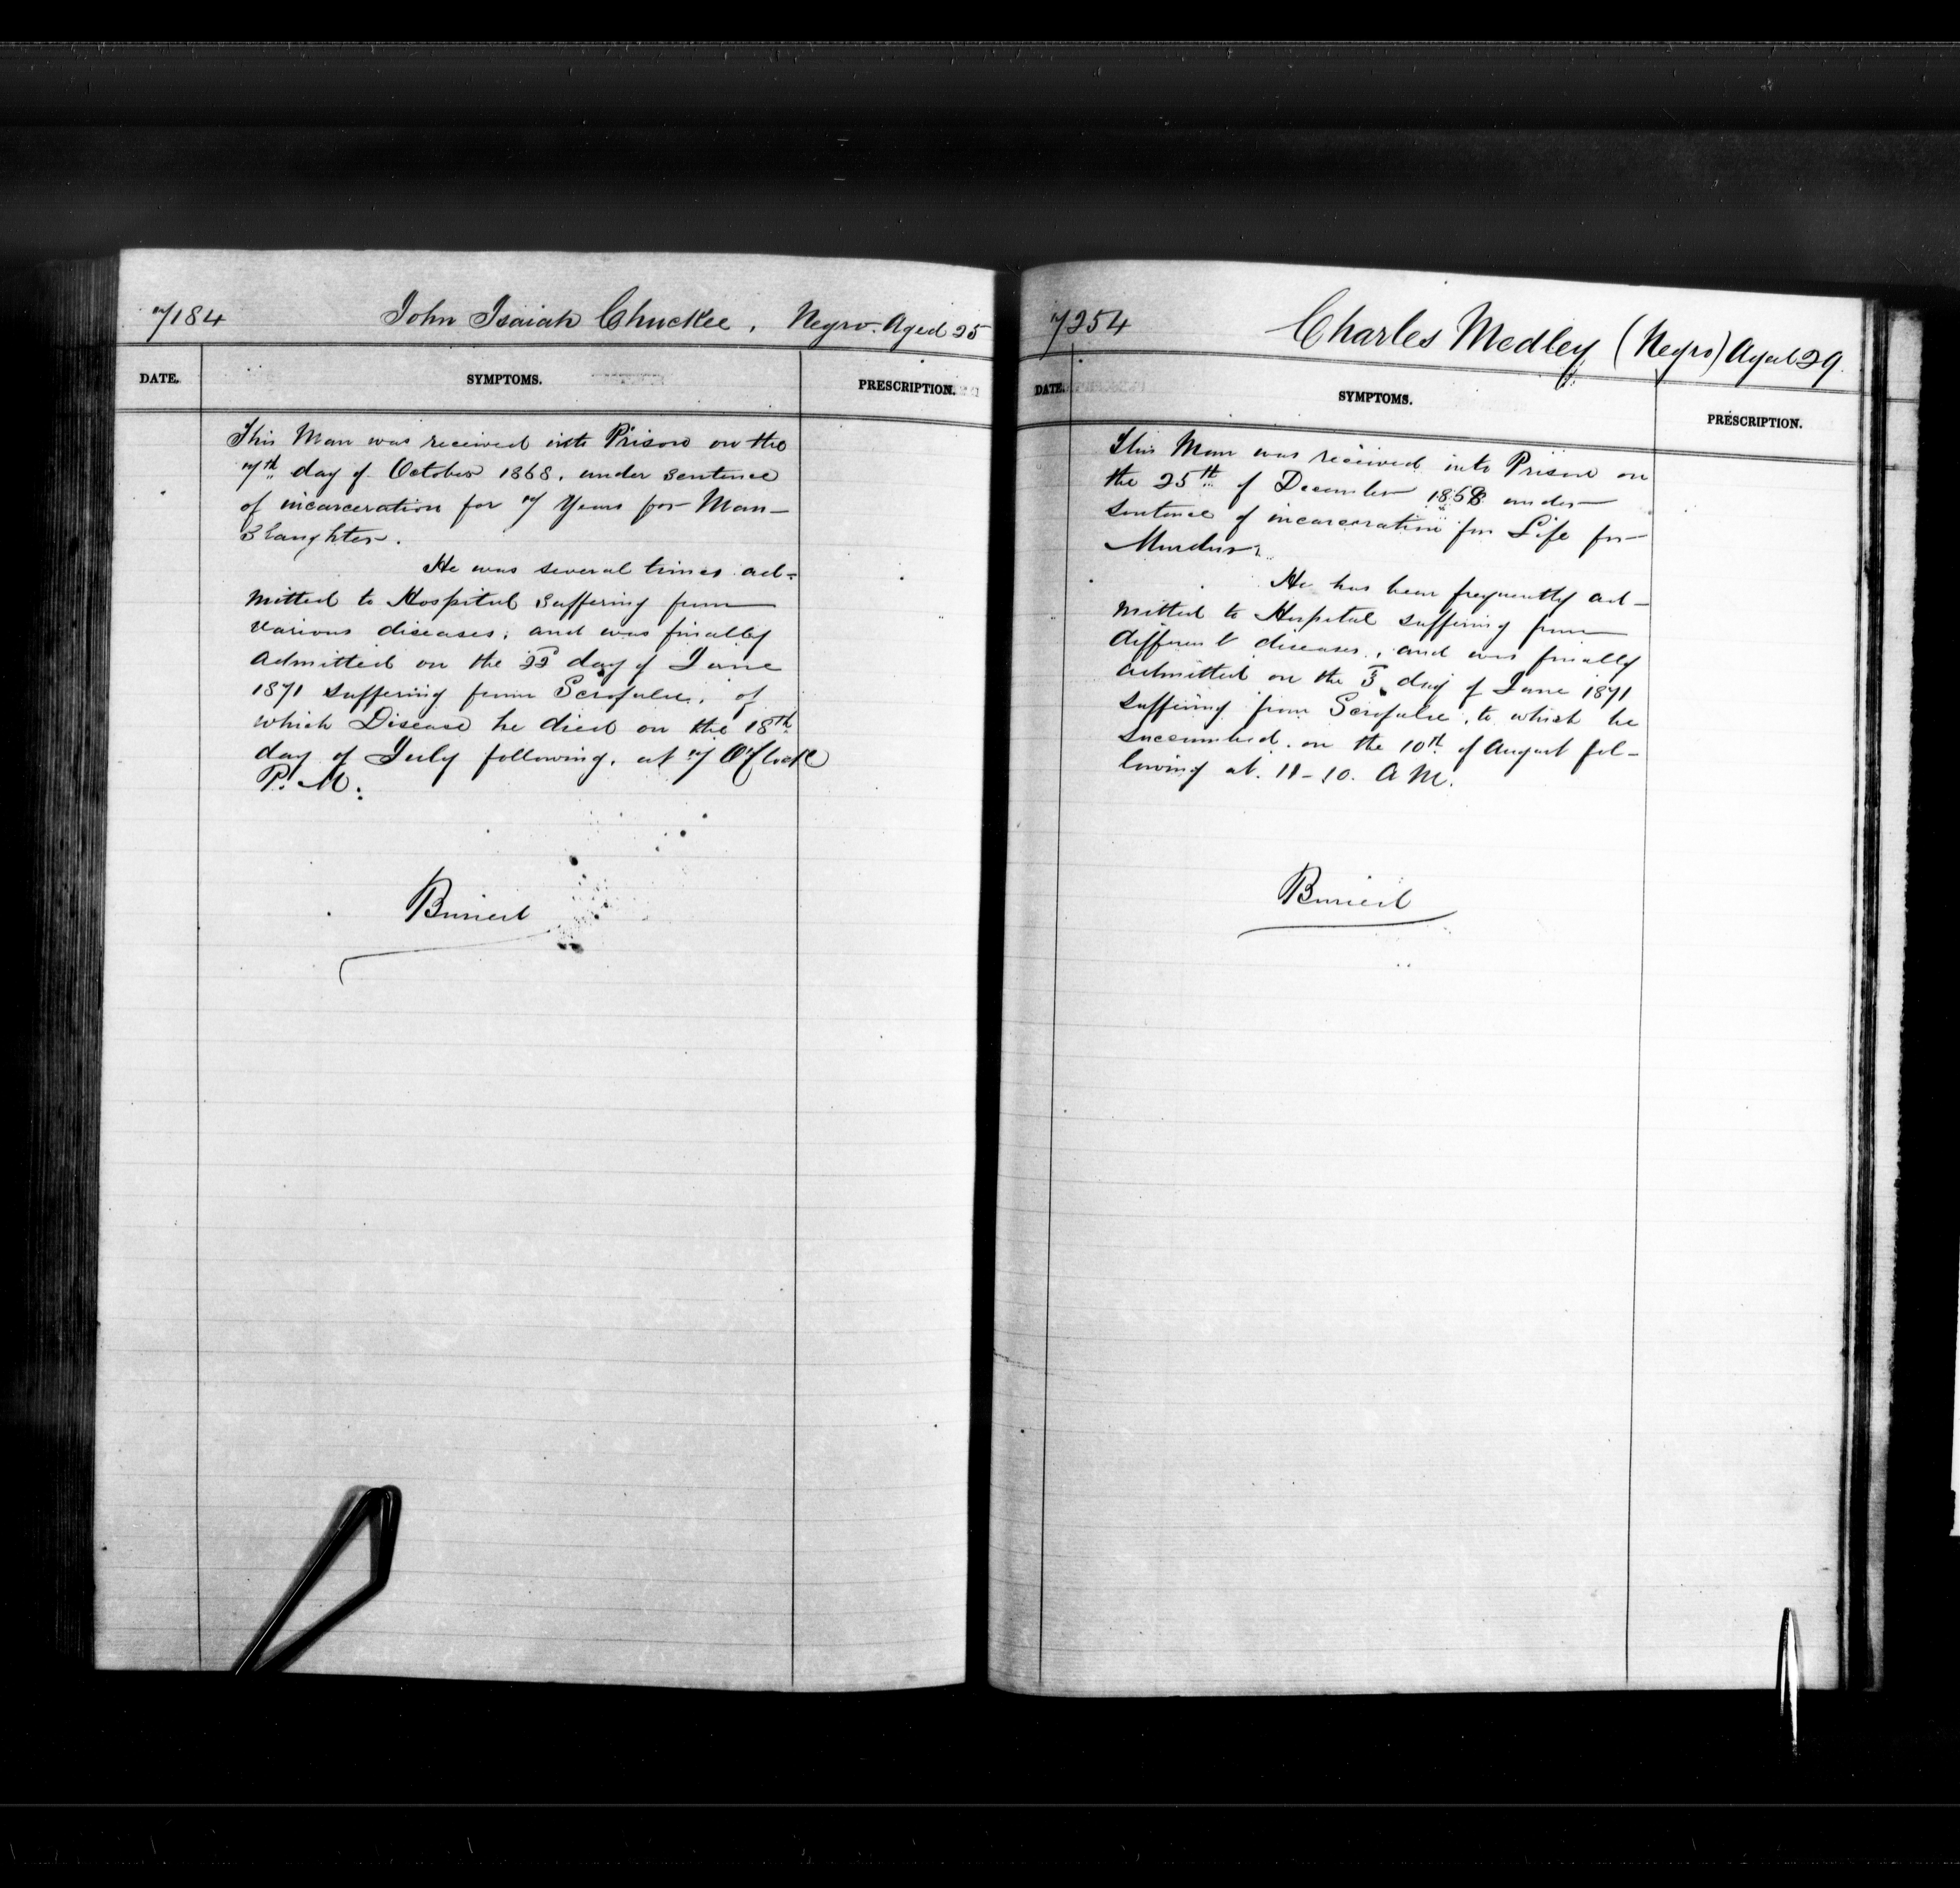 7184 John Isaiah Chuckee, Negro. Aged 25
DATE. SYMPTOMS. PRESCRIPTION.
This Man was received into Prison on the
7th day of October 1868, under sentence
of incarceration for 7 Years for Man-
Slaughter.
He was several times ad-
mitted to Hospital suffering from
various diseases, and was finally
admitted on the 22d day of June
1871 suffering from Scrofula, of
which Disease he died on the 18th
day of July following, at 7 O'Clock
P.M.
Buried
7254 Charles Medley (Negro) Aged 29.
DATE. SYMPTOMS. PRESCRIPTION.
This Man was received into Prison on
the 25th of December 1868 under
sentence of incarceration for Life for
Murder.
He has been frequently ad-
mitted to Hospital suffering from
different diseases, and was finally
admitted on the 3d day of June 1871
suffering from Scrofula, to which he
succumbed on the 10th of August fol-
lowing at 11-10. A M.
Buried